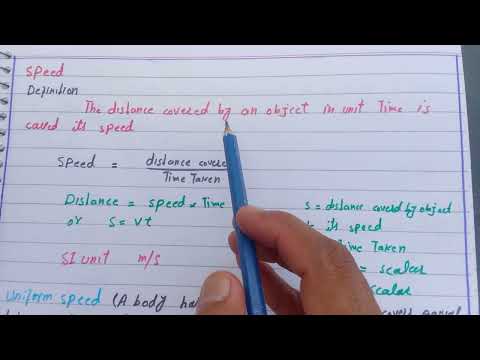 Speed
Definition
The distance covered by an object in unit Time is
called its speed
Speed = distance covere
Time Taken
Distance = speed × Time
or S = vt
S = distance coverd by object
its speed
Time Taken
= scalar
scalar
SI unit m/s
uniform speed (A body ha
covers equal